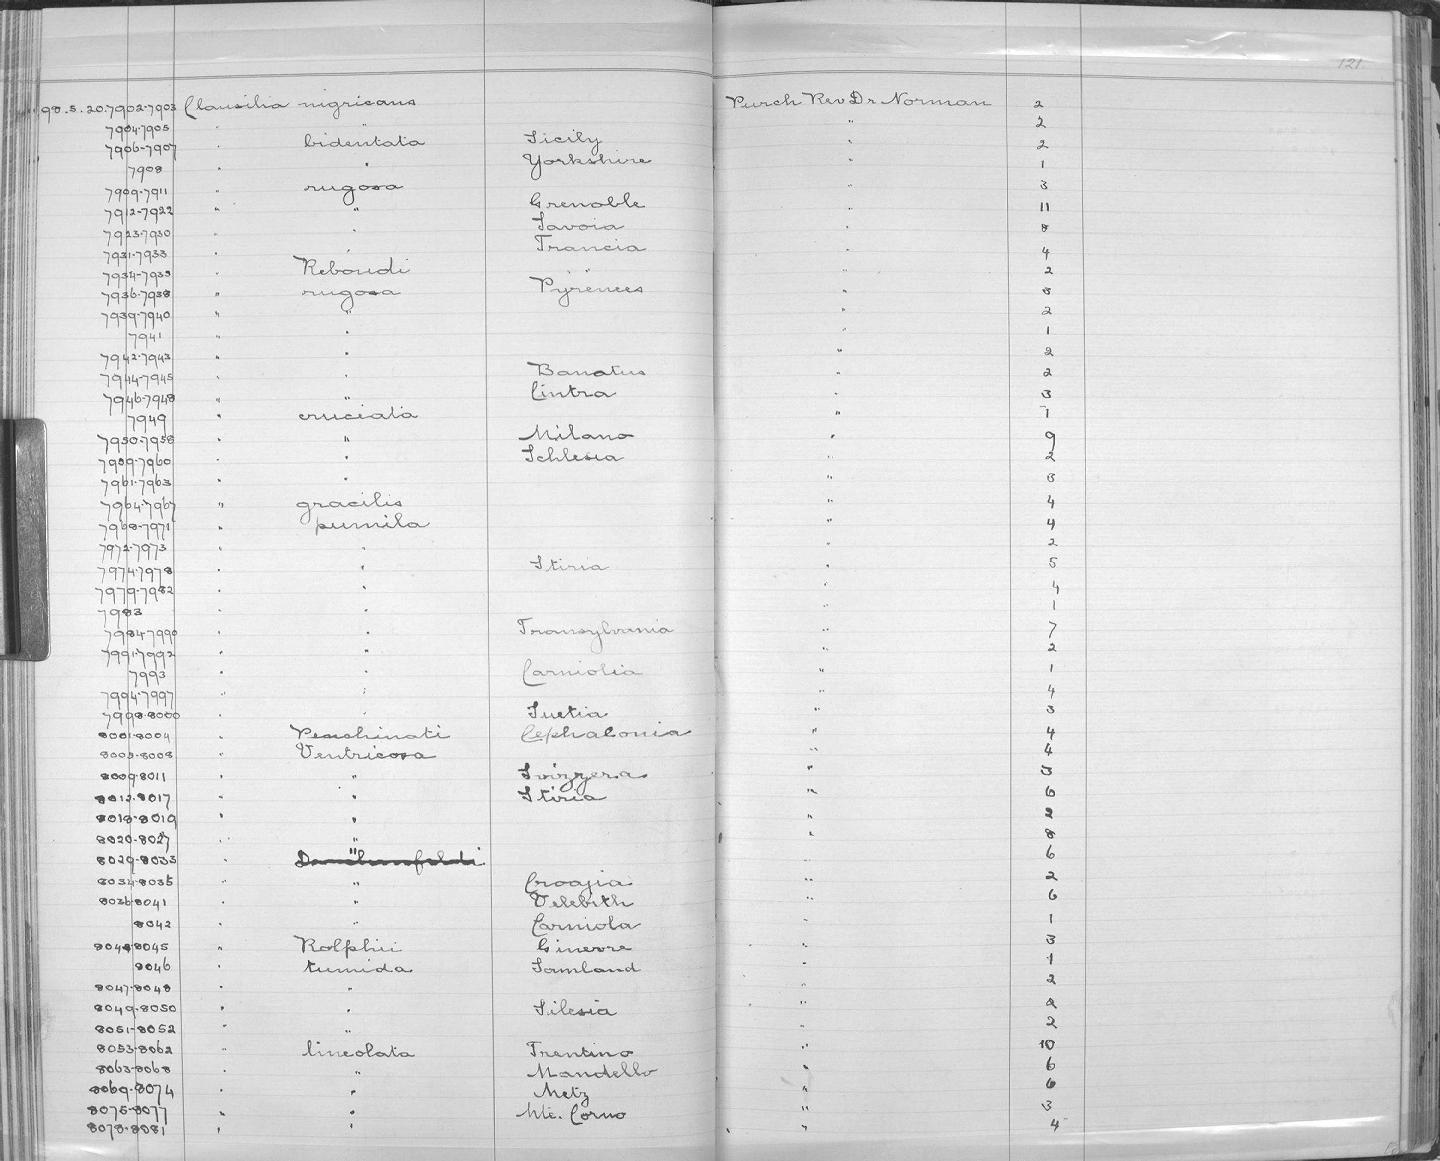 121.
98.5.20.7902-7903 Clausilia nigricans Purch Rev Dr Norman 2
7904-7905 " " " 2
7906-7907 " bidentata Sicily " 2
7908 " " Yorkshire " 1
7909-7911 " rugosa " 3
7912-7922 " " Grenoble " 11
7923-7930 " " Savoia " 8
7931-7933 " " Francia " 4
7934-7935 " Reboudi " " 2
7936-7938 " rugosa Pyrenees " 3
7939-7940 " " " 2
7941 " " " 1
7942-7943 " " " 2
7944-7945 " " Banatus " 2
7946-7948 " " Cintra " 3
7949 " cruciata " 1
7950-7958 " " Milano " 9
7959-7960 " " Schlesia " 2
7961-7963 " " " 3
7964-7967 " gracilis " 4
7968-7971 " pumila " 4
7972-7973 " " " 2
7974-7978 " " Stiria " 5
7979-7982 " " " 4
7983 " " 1
7984-7990 " Transylvania " 7
7991-7992 " " " 2
7993 " " Carniolia " 1
7994-7997 " " " 4
7998-8000 " " Suetia " 3
8001-8004 " Cephalonia " 4
8005-8008 " Ventricosa " 4
8009-8011 " " Svizzera " 3
8012-8017 " " Stiria " 6
8018-8019 " " " 2
8020-8027 " " " 8
8029-8033 " " " 6
8034-8035 " " Croazia " 2
8036-8041 " " Velebith " 6
8042 " Carniola " 1
8043-8045 " Rolphii Ginevre " 3
8046 tumida Samland " 1
8047-8048 " " 2
8049-8050 " " Silesia " 2
8051-8052 " " " 2
8053-8062 " lineolata Trentino " 10
8063-8068 " " Mandello " 6
8069-8074 " Metz " 6
8075-8077 " " Mte. Corno " 3
8078-8081 " " " 4